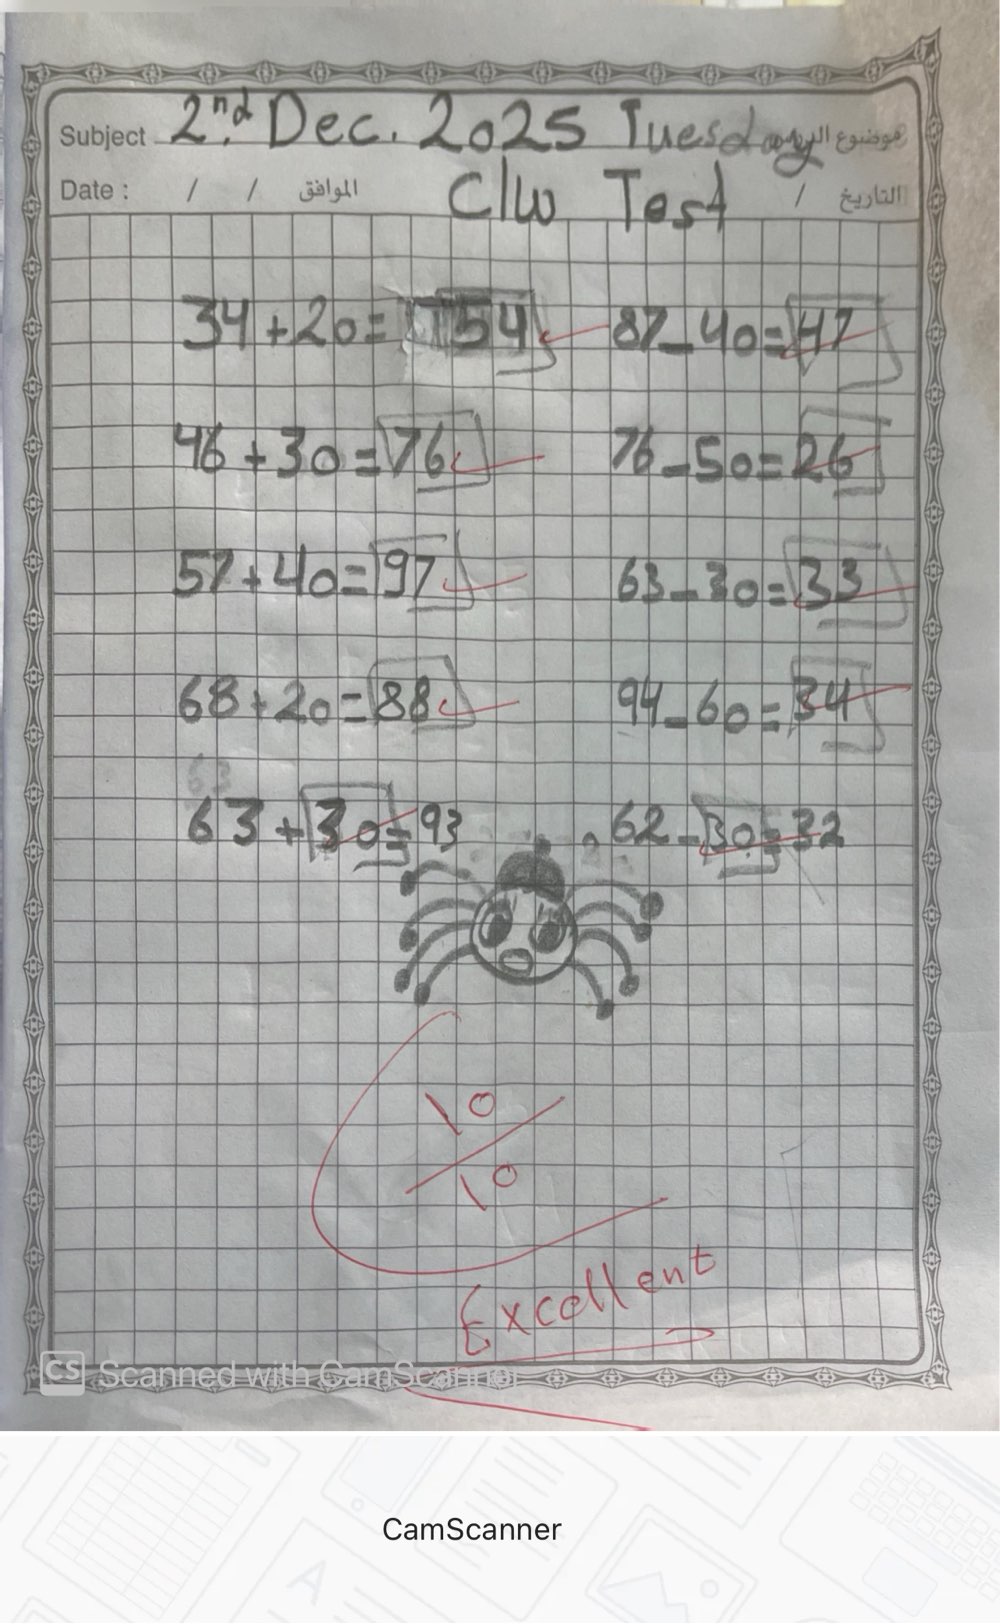 Subject 2nd Dec. 2025 Tuesday موضوع الدرس
Date : / / الموافق C/w Test / التاريخ
34 + 20 = 54 87 - 40 = 47
46 + 30 = 76 76 - 50 = 26
57 + 40 = 97 63 - 30 = 33
68 + 20 = 88 94 - 60 = 34
63
63 + 30 = 93 62 - 30 = 32
10
10
Excellent
CS Scanned with CamScanner
CamScanner